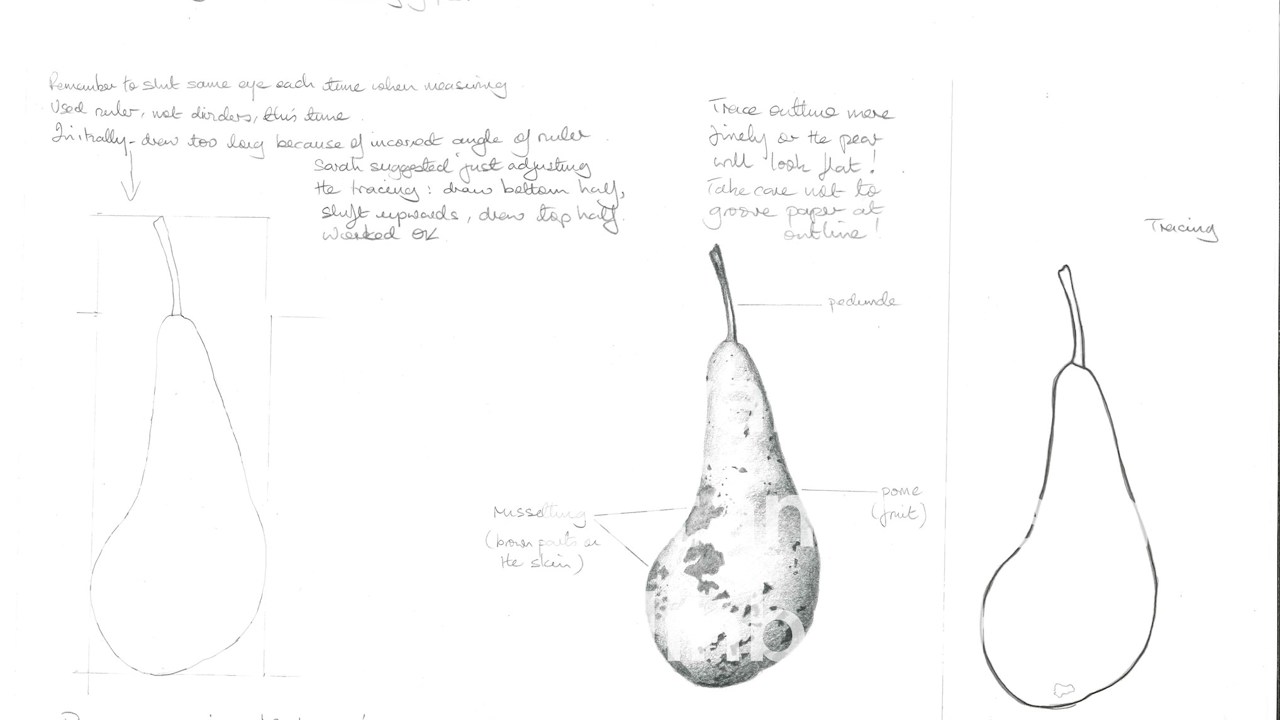 Remember to shut same eye each time when measuring
Used ruler, not dividers, this time.
Initially - drew too long because of incorrect angle of ruler.
Sarah suggested just adjusting
the tracing: draw bottom half,
shift upwards, draw top half.
Worked OK
Trace outline more
finely or the pear
will look flat!
Take care not to
groove paper at
outline!
Tracing
peduncle
pome
(fruit)
russetting
(brown parts on
the skin)